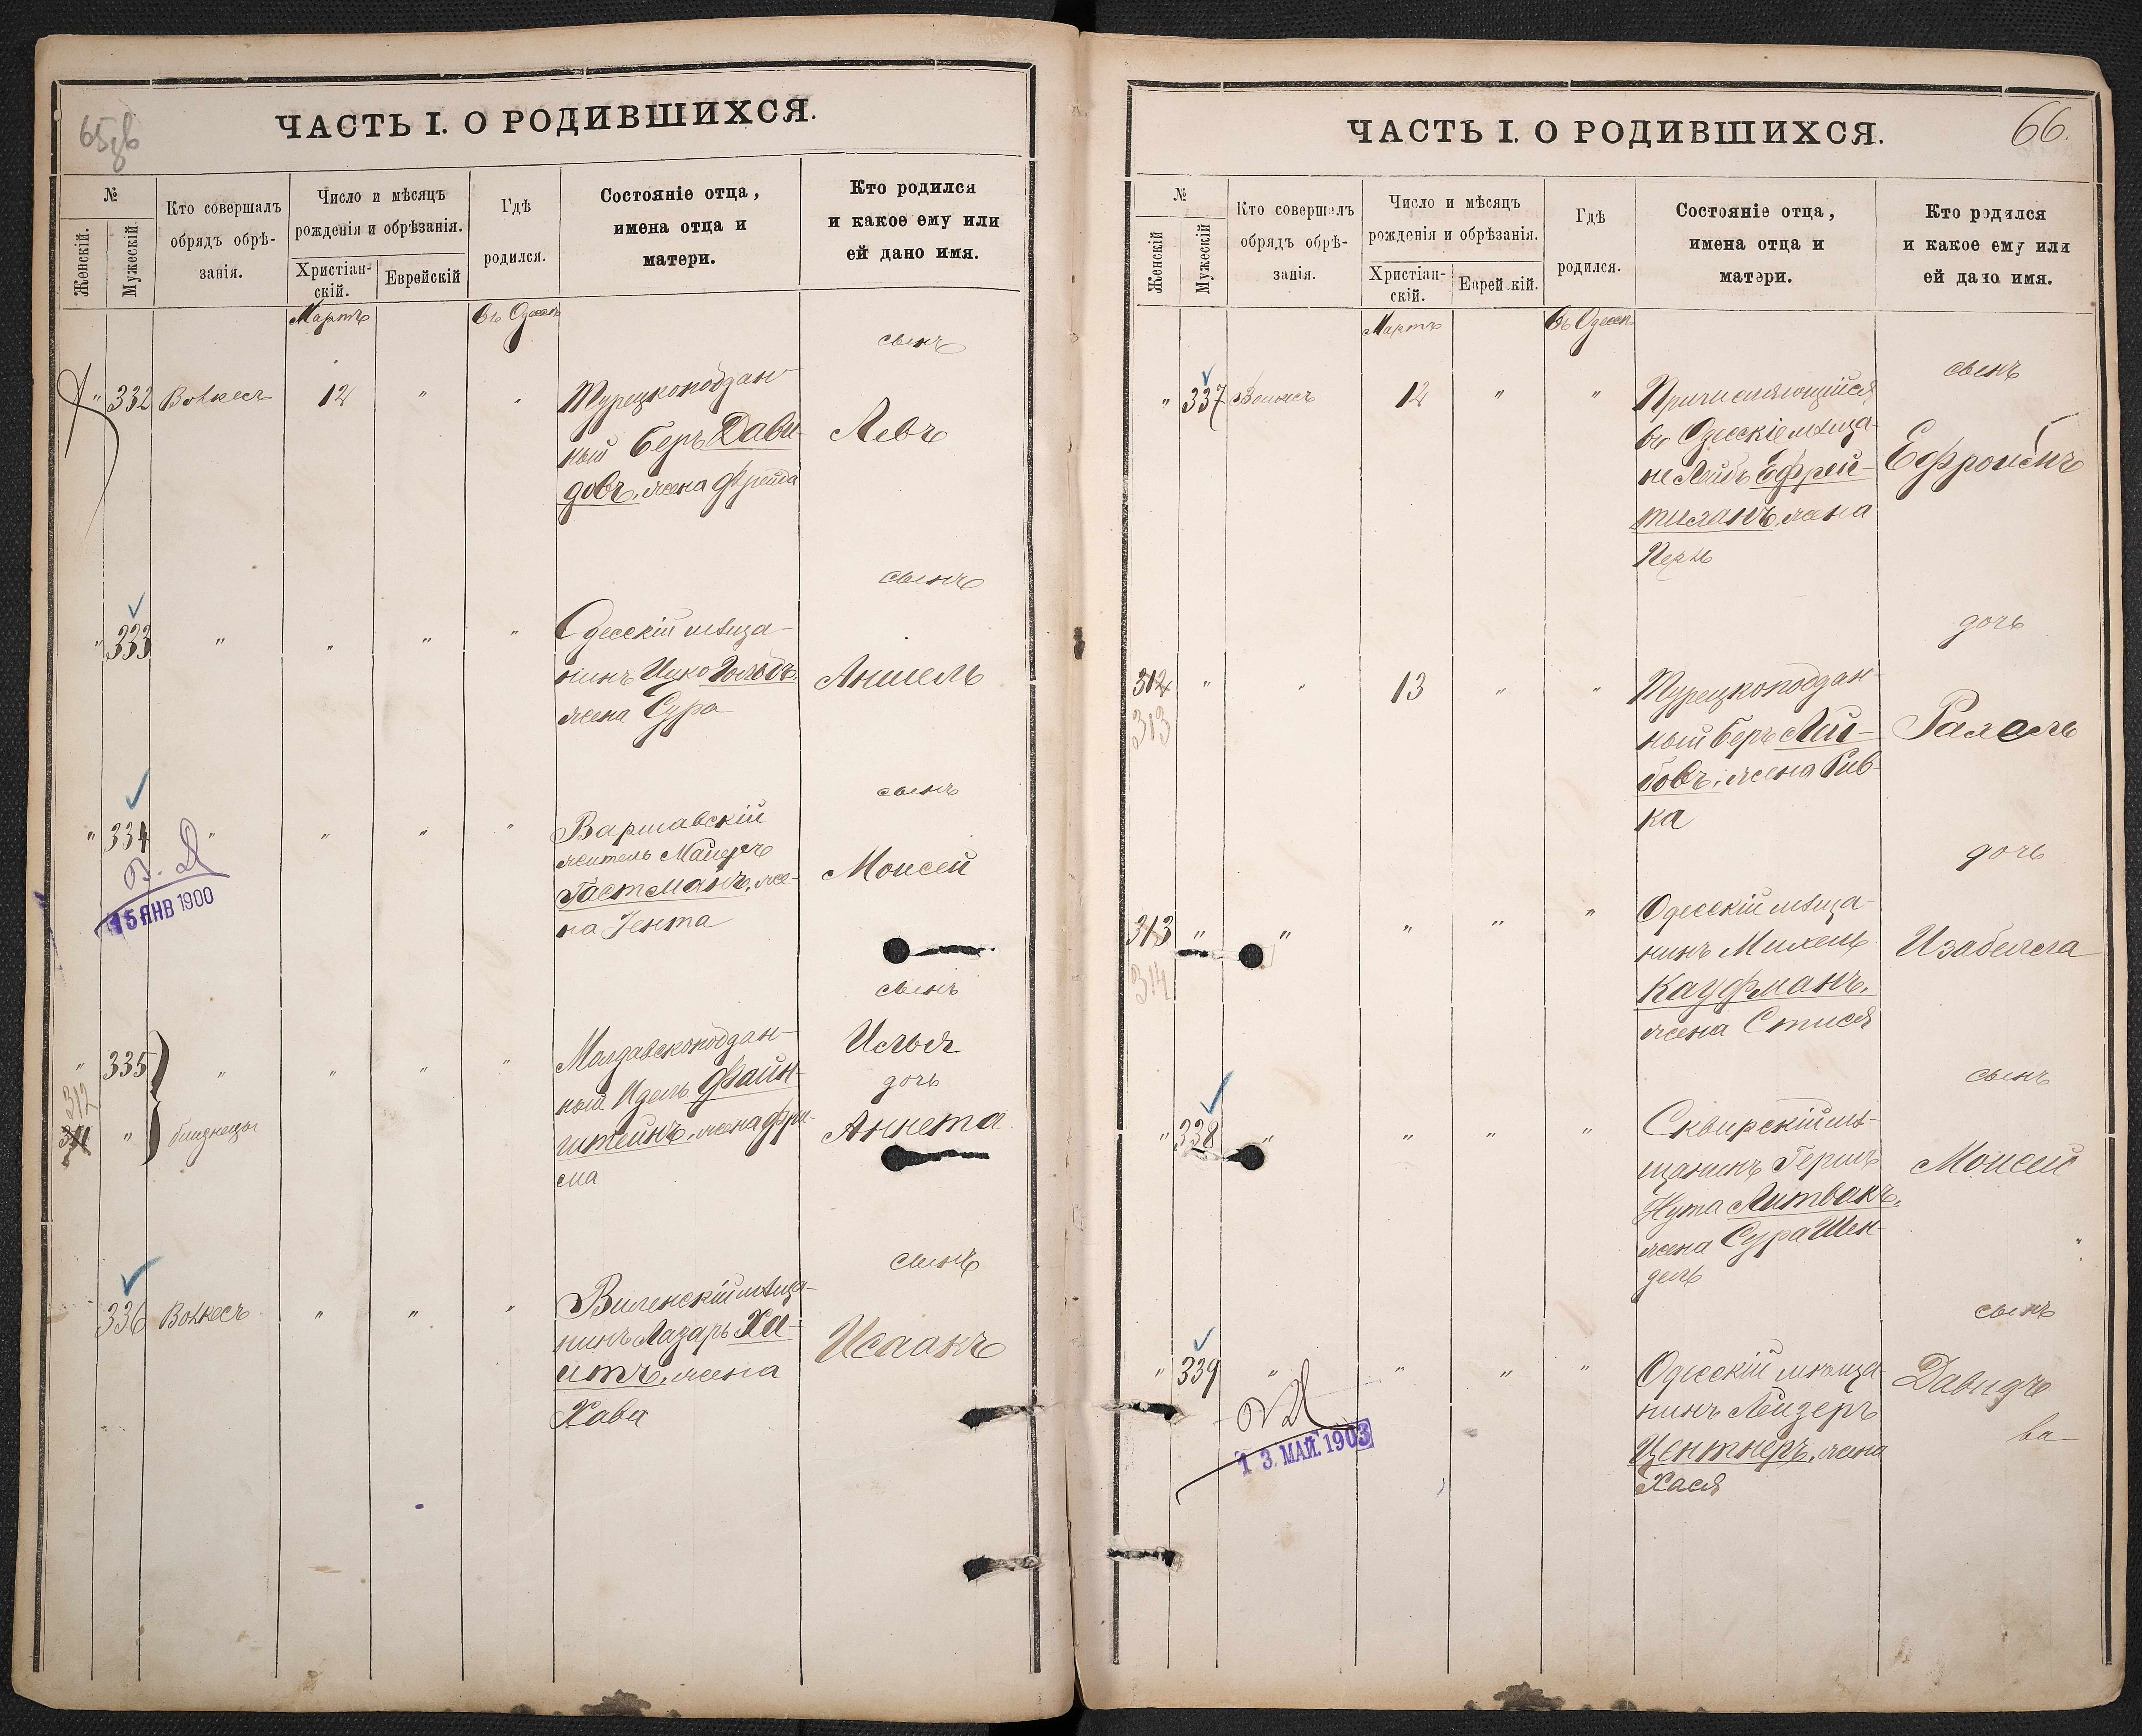 65 об
ЧАСТЬ I. О РОДИВШИХСЯ.
№
Женскій.
Мужескій
Кто совершалъ
обрядъ обрѣ-
занія.
Число и мѣсяцъ
рожденія и обрѣзанія.
Христіан-
скій.
Еврейскій
Гдѣ
родился.
Состояніе отца,
имена отца и
матери.
Кто родился
и какое ему или
ей дано имя.
Мартъ
въ Одессѣ
сынъ
" 332
12 " "
Турецкоподдан-
ный Беръ Дави-
довъ, жена Фрейда
Левъ
сынъ
" 333 " " " "
Одесскій мѣща-
нинъ Ицко
жена Сура
Аншель
сынъ
" 334 " " " "
Варшавскій
житель Майеръ
Гастманъ, же-
на Іента
Моисей
15 ЯНВ 1900
сынъ
" 335 " " " "
Молдавскоподдан-
ный Идель Файн-
штейнъ, жена Фри-
ма
Илья
дочь
312
311 " близнецы
Аннета
сынъ
336
" " "
Виленскій мѣща-
нинъ Лазарь Ха-
итъ, жена
Хава
Исаакъ
66.
ЧАСТЬ I. О РОДИВШИХСЯ.
№
Женскій
Мужескій
Кто совершалъ
обрядъ обрѣ-
занія.
Число и мѣсяцъ
рожденія и обрѣзанія.
Христіан-
скій.
Еврейскій.
Гдѣ
родился.
Состояніе отца,
имена отца и
матери.
Кто родился
и какое ему или
ей дано имя.
Мартъ
въ Одессѣ
сынъ
" 337
12 " "
Причисляющійся
въ Одесскіе мѣща-
не Лейбъ Ефрей-
жена
Перль
Ефроимъ
дочь
312 " " 13 " "
313
Турецкоподдан-
ный Беръ Лей-
бовъ, жена Рив-
ка
Рахель
дочь
313 " " " " "
314
Одесскій мѣща-
нинъ Михель
Кауфманъ,
жена Стися
Изабелла
сынъ
" 338 " " " "
Сквирскій мѣ-
щанинъ Герш
Нута Литвакъ,
жена Сура Шен-
дель
Моисей
сынъ
" 339 " " " "
Одесскій мѣща-
нинъ Лейзеръ
Центнеръ, жена
Хася
Давидъ
ва
13. МАЙ. 1903